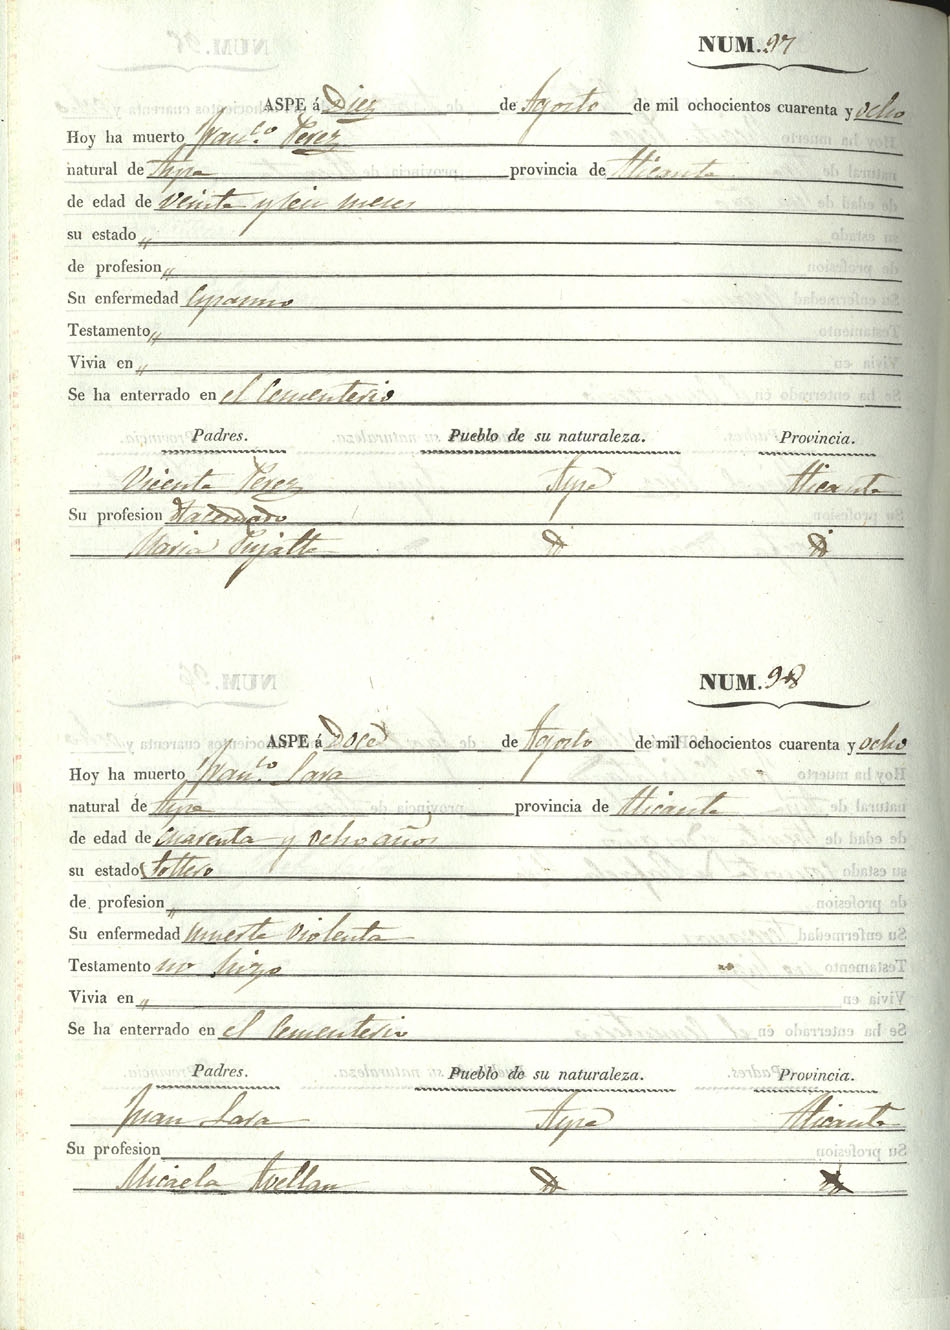 NUM. 97
ASPE á Diez de Agosto de mil ochocientos cuarenta y ocho
Hoy ha muerto Fran.co Perez
natural de Aspe provincia de Alicante
de edad de veinte y seis meses
su estado „
de profesion „
Su enfermedad Espasmo
Testamento „
Vivia en „
Se ha enterrado en el Cementerio
Padres. Pueblo de su naturaleza. Provincia.
Vicente Perez Aspe Alicante
Su profesion Hacendado
Maria Pujalte
NUM. 98
ASPE á Doce de Agosto de mil ochocientos cuarenta y ocho
Hoy ha muerto Fran.co Lara
natural de Aspe provincia de Alicante
de edad de cuarenta y ocho años
su estado Soltero
de profesion „
Su enfermedad muerte violenta
Testamento no hizo
Vivia en „
Se ha enterrado en el Cementerio
Padres. Pueblo de su naturaleza. Provincia.
Juan Lara Aspe Alicante
Su profesion
Micaela Avellan